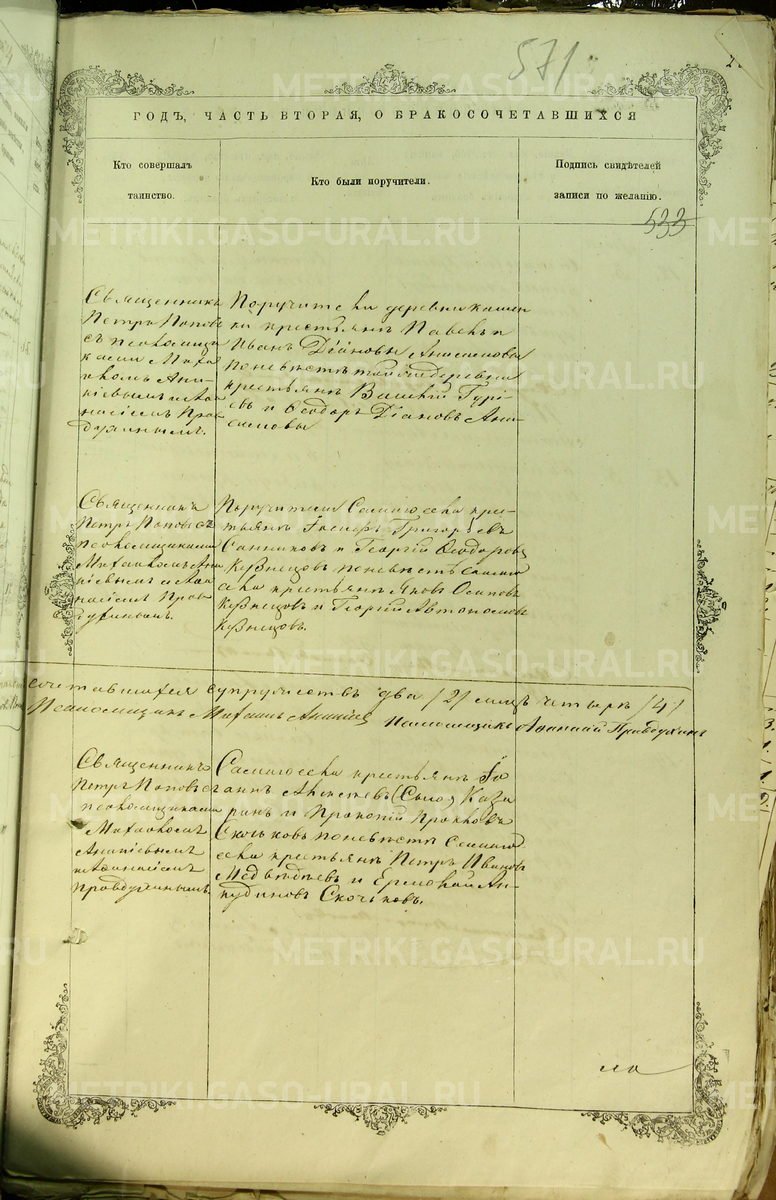 571
ГОДЪ, ЧАСТЬ ВТОРАЯ, О БРАКОСОЧЕТАВШИХСЯ
Кто совершалъ
таинство.
Кто были поручители.
Подпись свидѣтелей
записи по желанію.
533
Священникъ
Петръ Поповъ
съ псаломщи
ками Миха
иломъ Ана-
ніевымъ и Аѳа
насіемъ Прав
духинымъ.
Поручители деревни
ки крестьяне Павелъ и
Иванъ Діановы Анисимовы
по невѣстѣ той же деревни
крестьяне Василій Гурі-
евъ и Ѳеодоръ Діановъ Ани-
симовы
Священникъ
Петръ Поповъ съ
псаломщиками
Михаиломъ Ана
ніевымъ и Аѳа
насіемъ Прав
духинымъ.
Поручители Самаго села кре-
стьяне Григорьевъ
Санниковъ и Георгій Ѳеодоровъ
Кузнецовъ по невѣстѣ самаго
села крестьяне Яковъ Осиповъ
Кузнецовъ и Георгій Автономовъ
Кузнецовъ.
сочетавшихся супружествъ два /2/ лицъ четыре /4/
Псаломщикъ Михаилъ Ананіевъ Псаломщикъ Аѳанасій Правдухинъ
Священникъ
Петръ Поповъ съ
псаломщиками
Михаиломъ
Ананіевымъ
и Аѳанасіемъ
Правдухинымъ.
Самаго села крестьяне Іо
аннъ Алексѣевъ Каза
ринъ и Прокопій
Скочковъ по невѣстѣ Самаго
села крестьяне Петръ Ивановъ
Медвѣдевъ и Ермолай Ан-
кудиновъ Скочковъ.
ла
METRIKI.GASO-URAL.RU